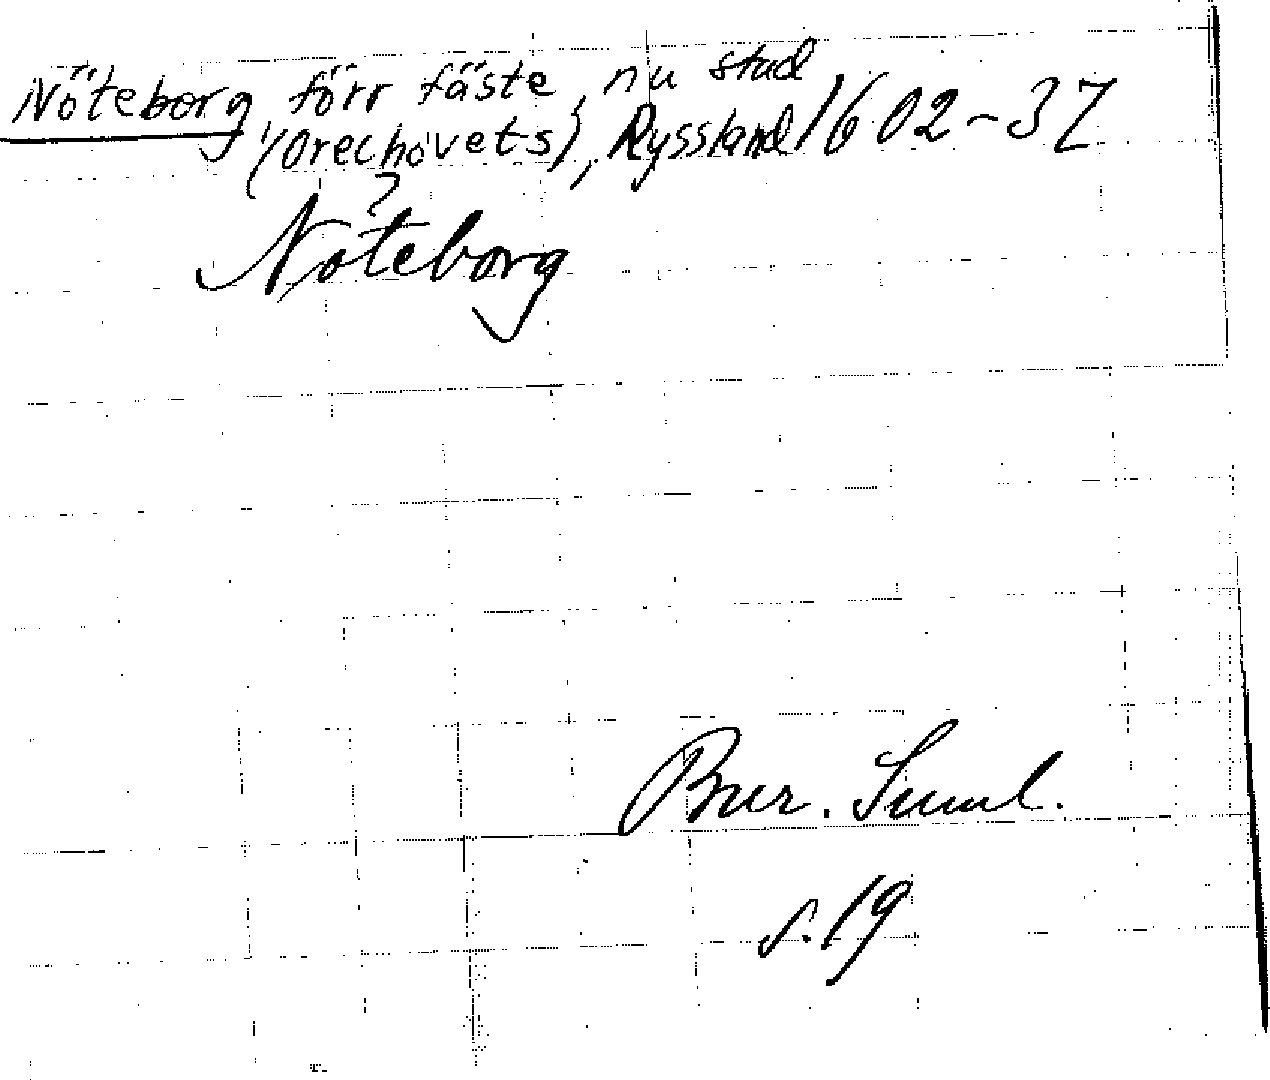 Nöteborg förr fäste, nu stad
(Orechovets), Ryssland 1602-37
?
Nöteborg
Bur. Suml.
s. 19